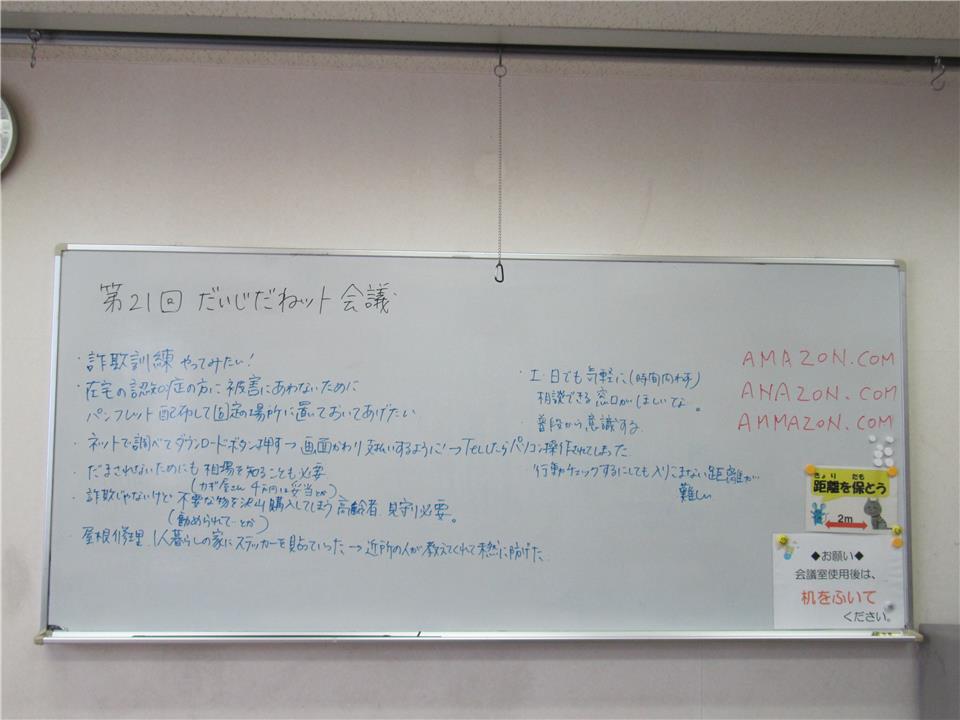 第21回 だいじだねット会議
・詐欺訓練やってみたい!
・在宅の認知症の方に被害にあわないために
パンフレット配布して固定の場所に置いておいてあげたい
・ネットで調べてダウンロードボタン押す→画面かわり支払いするように!→Telしたらパソコン操作されてしまった
・だまされないためにも相場を知ることも必要
(カギ屋さん 4万円は妥当とか)
・詐欺じゃないけど不要な物を沢山購入してしまう高齢者 見守り必要。
(勧められて…とか)
・屋根修理、1人暮らしの家にステッカーを貼っていった→近所の人が教えてくれて未然に防げた
・土・日でも気軽に(時間内わず)
相談できる窓口がほしいでよ。
・普段から意識する
・行動チェックするにしても入りこまない距離が
難しい
AMAZON.COM
ANAZON.COM
AMMAZON.COM
きょり たも
距離を保とう
2m
◆お願い◆
会議室使用後は、
机をふいて
ください。